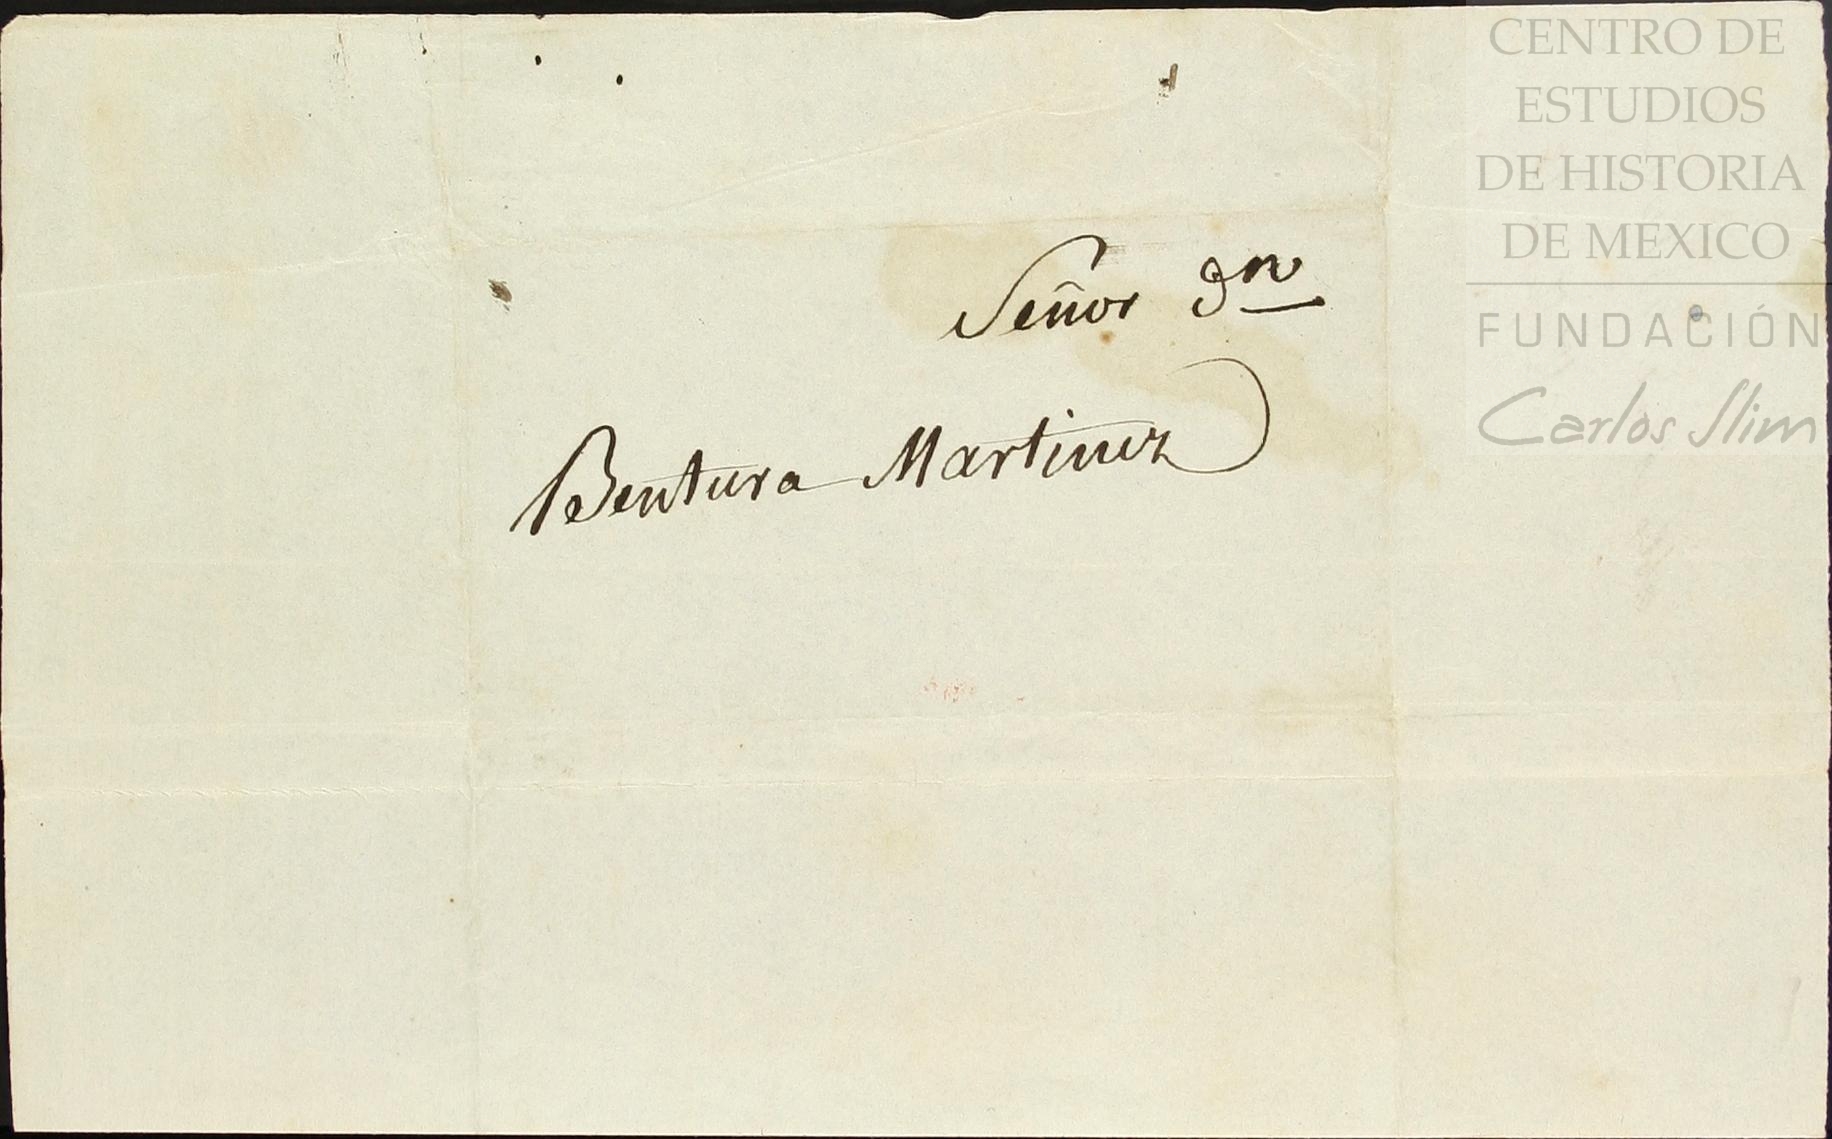 CENTRO DE
ESTUDIOS
DE HISTORIA
DE MEXICO
FUNDACIÓN
Carlos Slim
Señor Dn
Bentura Martinez